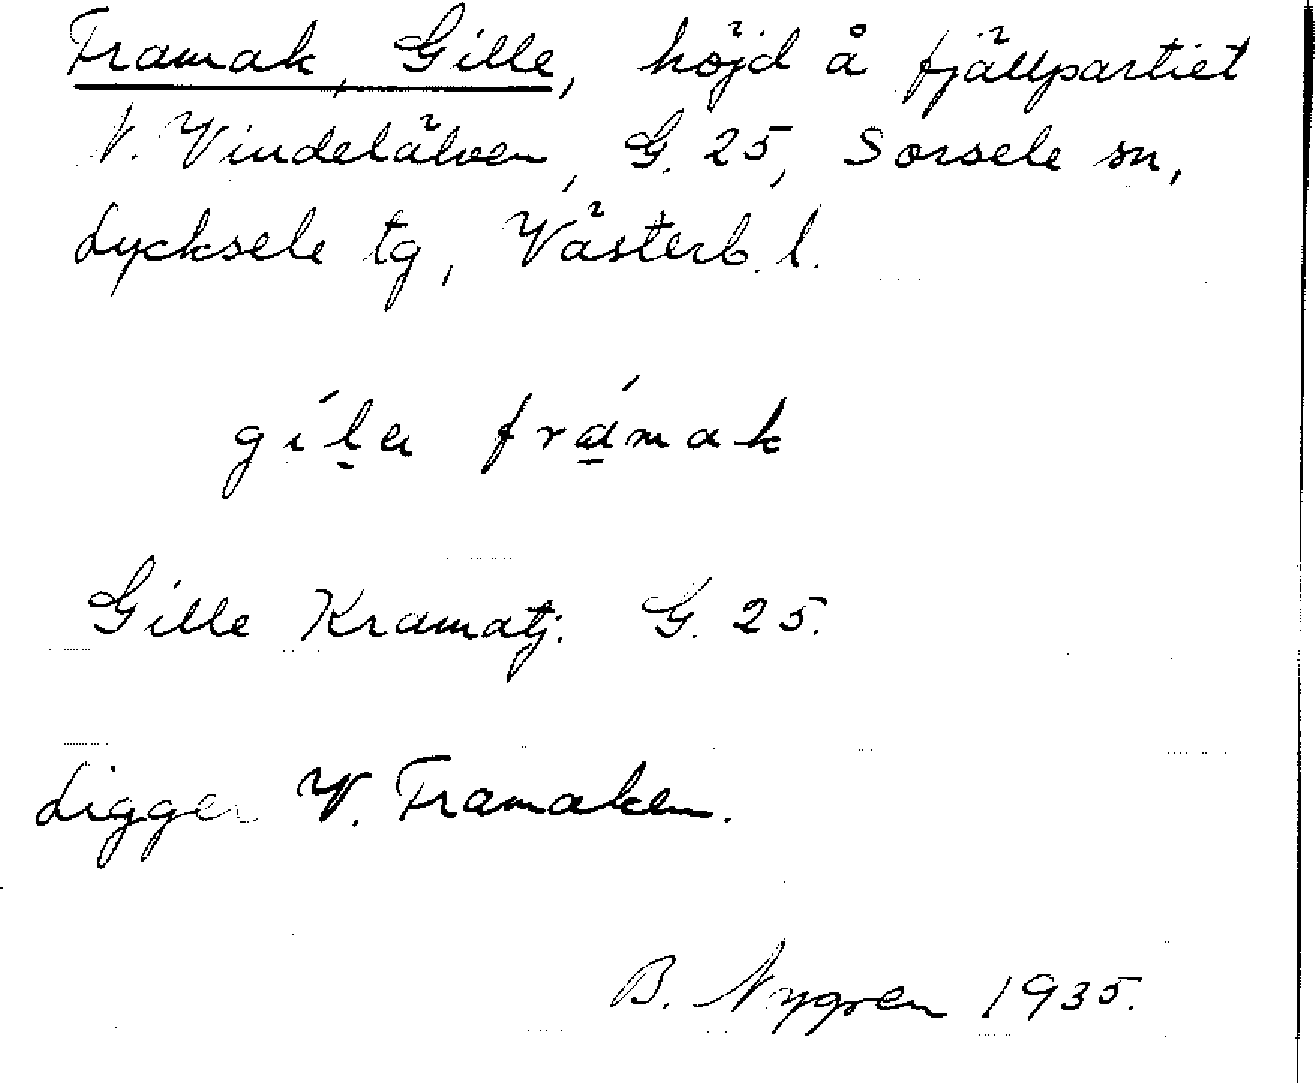 Framak, Gille, höjd å fjällpartiet
N. Vindelälven, G. 25, Sorsele sn,
Lycksele tg, Västerb. l.
gíl̠a frá̠mak
Gille Kramatj. G. 25.
Ligger V. Framaken.
B. Nygren 1935.